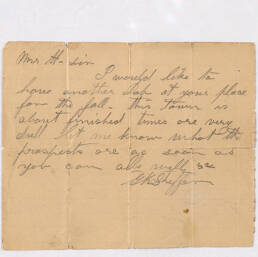 Mrs A- Sir
I would like to
have another Job at your place
for the fall. this tower is
about finished times are very
dull let me know what the
prospects are as soon as
you can all well